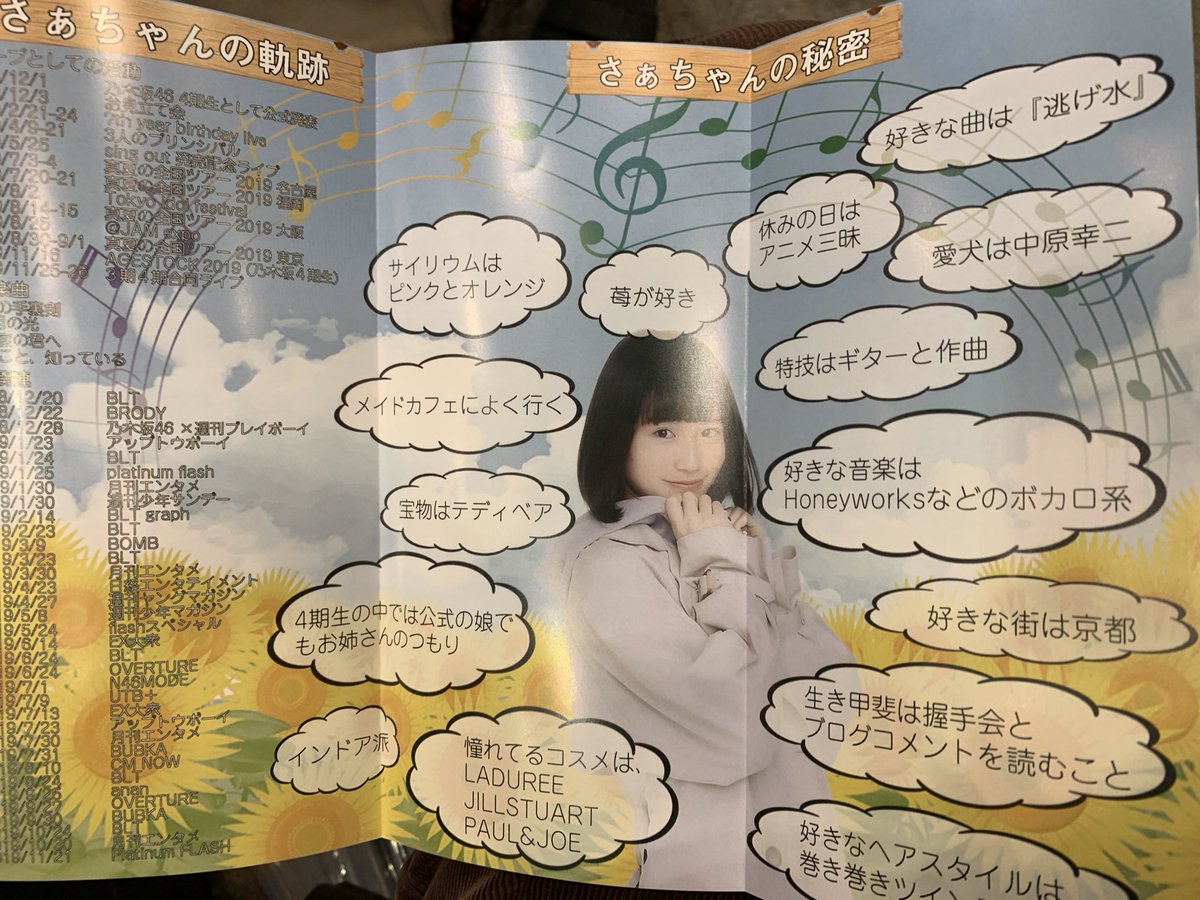 さぁちゃんの軌跡
ープとしての活動
/12/1 乃木坂46 4期生として公式発表
/12/3 お見立て会
/2/21-24 7th year birthday live
/4/9-21 3人のプリンシパル
/5/25 sing out 発売記念ライブ
/7/3-4 真夏の全国ツアー 2019 名古屋
/7/20-21 真夏の全国ツアー 2019 福岡
/8/2 Tokyo idol festival
/8/14-15 真夏の全国ツアー 2019 大阪
@JAM expo
/8/30-9/1 真夏の全国ツアー 2019 東京
/11/16 AGESTOCK 2019 (乃木坂4期生)
/11/25-26 3期4期合同ライブ
楽曲
の手裏剣
の光
の君へ
こと、知っている
8/12/20 BLT
8/12/22 BRODY
8/12/28 乃木坂46 ×週刊プレイボーイ
9/1/23 アップトゥボーイ
9/1/24 BLT
9/1/25 platinum flash
9/1/30 月刊エンタメ
9/1/30 週刊少年サンデー
9/2/14 BLT graph
9/2/23 BLT
9/3/9 BOMB
9/3/23 BLT
9/3/30 月刊エンタメ
9/4/23 エンタテイメント
9/4/27 週刊ヤングマガジン
9/5/8 週刊少年マガジン
9/5/24 flashスペシャル
9/6/14 EX大衆
9/6/24 BLT
9/6/24 OVERTURE
9/7/1 N46MODE
9/7/9 UTB+
9/7/13 EX大衆
9/7/23 アップトゥボーイ
9/7/30 月刊エンタメ
9/7/31 BUBKA
CM NOW
BLT
anan
OVERTURE
BUBKA
BLT
月刊エンタメ
Platinum FLASH
さぁちゃんの秘密
好きな曲は『逃げ水』
休みの日は
アニメ三昧
愛犬は中原幸二
サイリウムは
ピンクとオレンジ
苺が好き
特技はギターと作曲
メイドカフェによく行く
好きな音楽は
Honeyworksなどのボカロ系
宝物はテディベア
好きな街は京都
4期生の中では公式の娘で
もお姉さんのつもり
生き甲斐は握手会と
ブログコメントを読むこと
インドア派
憧れてるコスメは、
LADUREE
JILLSTUART
PAUL&JOE
好きなヘアスタイルは
巻き巻きツイン